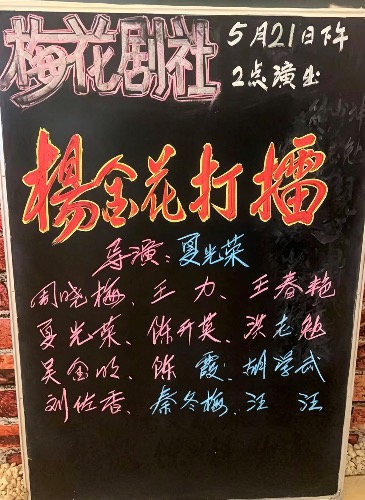 梅花剧社
5月21日下午
2点演出
楊金花打擂
导演:夏光荣
周晓梅、王 力、王春艳
夏光荣、陈开英、洪老勉
吴金明、陈 霞、胡学武
刘佐香、秦冬梅、汪 汪